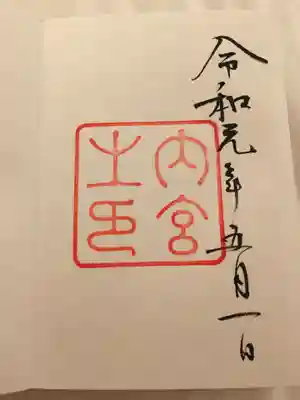 令和元年五月一日
内宮
之印